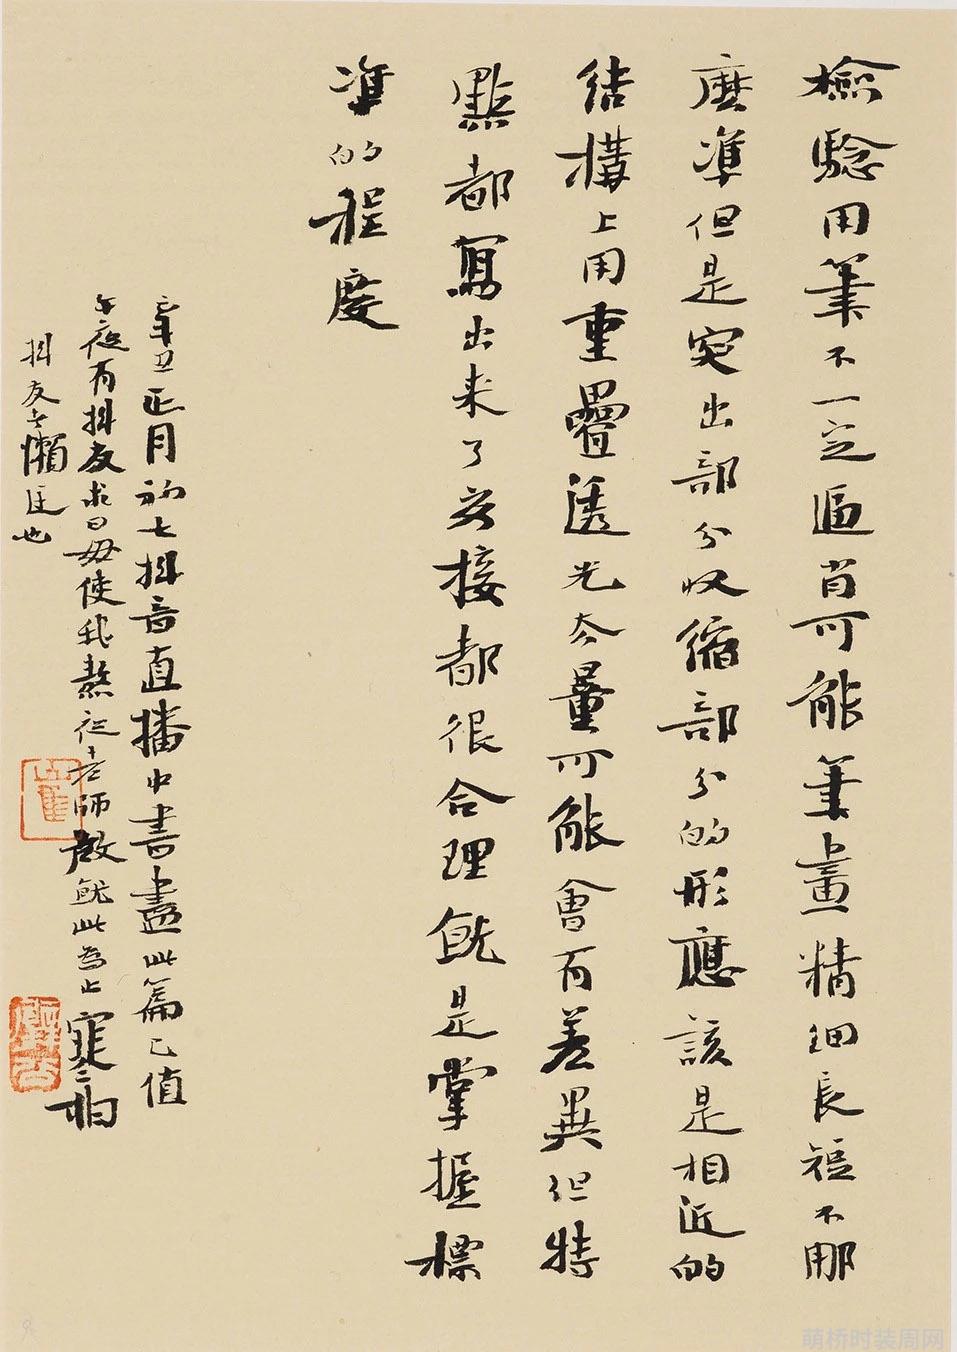 檢驗用筆不一定逼肖可能筆畫精細長短不那
麼準但是突出部分收縮部分的形應該是相近的
結構上用重疊透光太量可能會有差異但特
點都寫出來了安接都很合理既是掌握標
準的程度
辛丑正月初七抖音直播中書盡此篇已值
午夜有抖友求曰毋使我熬夜老師啟就此為止
抖友之懶逗也
萌桥时装周网